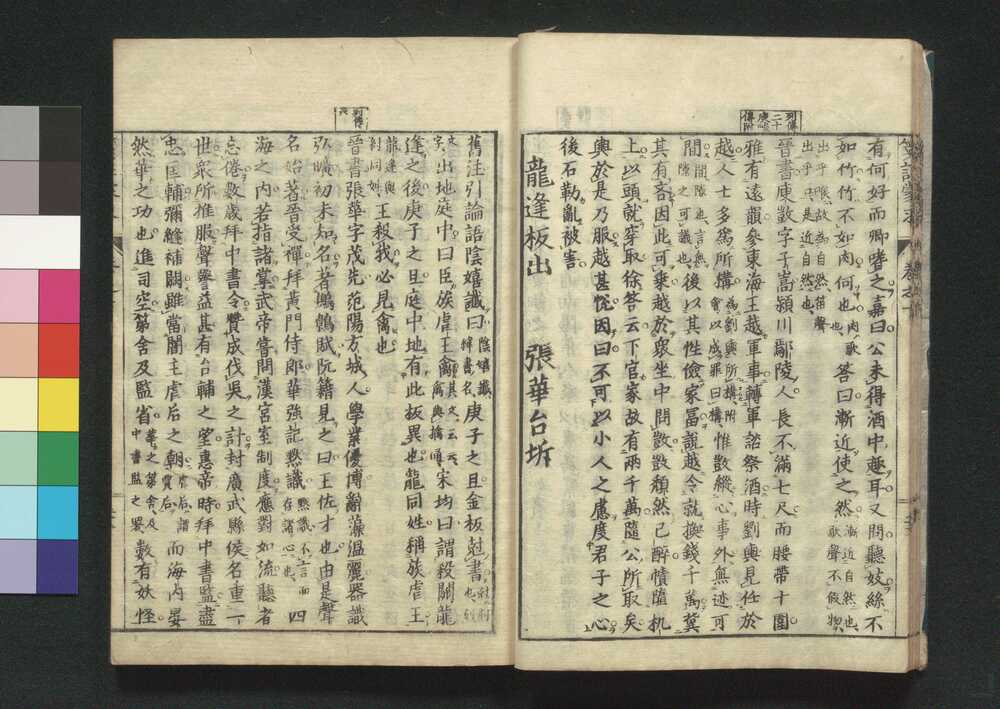 列傳
二十
庾敳
傳附
有何好而卿嗜之嘉曰公未得酒中趣耳又問聽妓絲不
如竹竹不如肉何也答曰漸近使之然
雅有遠韻參東海王越軍事轉軍諮祭酒時劉輿見任於
晉書庾敳字子嵩潁川鄢陵人長不滿七尺而腰帶十圍
越人士多爲所構惟敳縱心事外無迹可
間後以其性儉家富說越令就換錢千萬冀
其有吝因此可乗越於衆坐中問敳敳頹然已醉幘墮机
上以頭就穿取徐答云下官家故有兩千萬隨公所取矣
輿於是乃服越甚悅因曰不可以小人之慮度君子之心
後石勒亂被害
龍逢板出 張華台坼
列傳
舊注引論語陰嬉讖曰庚子之旦金板尅書
出地庭中曰臣族虐王禽宋均曰謂殺關龍
逢之後庚子之旦庭中地有此板異也龍同姓稱族虐王
王殺我必見禽也
晉書張華字茂先范陽方城人學業優博辭藻溫麗器識
弘曠初未知名著鷦鷯賦阮籍見之曰王佐才也由是聲
名始著晉受禪拜黃門侍郎華強記默識四
海之內若指諸掌武帝嘗問漢宮室制度應對如流聽者
忘倦數歲拜中書令贊成伐吳之計封廣武縣侯名重一
世衆所推服聲譽益甚有台輔之望惠帝時拜中書監盡
忠匡輔彌縫補闕雖當闇主虐后之朝而海內晏
然華之功也進司空第舍及監省數有妖怪